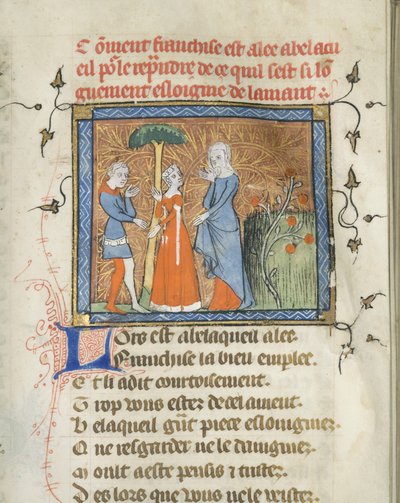 Cōment franchise est alee abelacu
eil pōr le repñdre de ce quil sest si lō
guement eslongine de lamant
Lors est abelaqueil alee
Franchise la bieu emplee
Et li a dit courtoisement
Trop vous estez de cel ament
Belaqueil gn̄t piece eslongniez
Q ne resgarder ne le daingniez
Ml̄t a este pensis ⁊ tristez
Des lors que vous ne le veistez